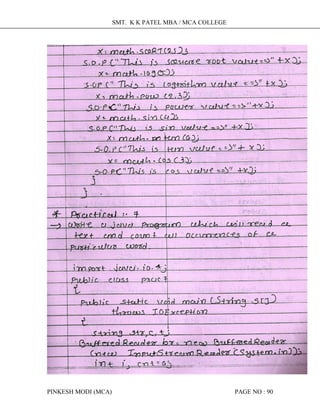 SMT. K K PATEL MBA / MCA COLLEGE
x= math.SQRT(9.5);
S.O.P("This is square root value=>" + x);
x= math.log(5);
S.O.P("This is logarithm value =>"+x);
x= math.pow (2.3);
S.O.P("This is power value =>"+x);
x= math.sin(4);
S.O.P("This is sin value =>"+x);
x= math. tan(9);
S.O.P("This is tan value =>"+ x);
x= math.cos(3);
S.O.P("This is cos value =>"+x);
}
}
* Practical : 9
→ write a java program which will read a
text and count all occurrences of a
particular word.
import java.io.*;
public class prac9
{
public static void main (String s[])
throws IOException
{
string str, c, t;
BufferedReader br= new BufferedReader
(new InputStreamReader(System.in));
int i, cnt=0;
PINKESH MODI (MCA)
PAGE NO : 90